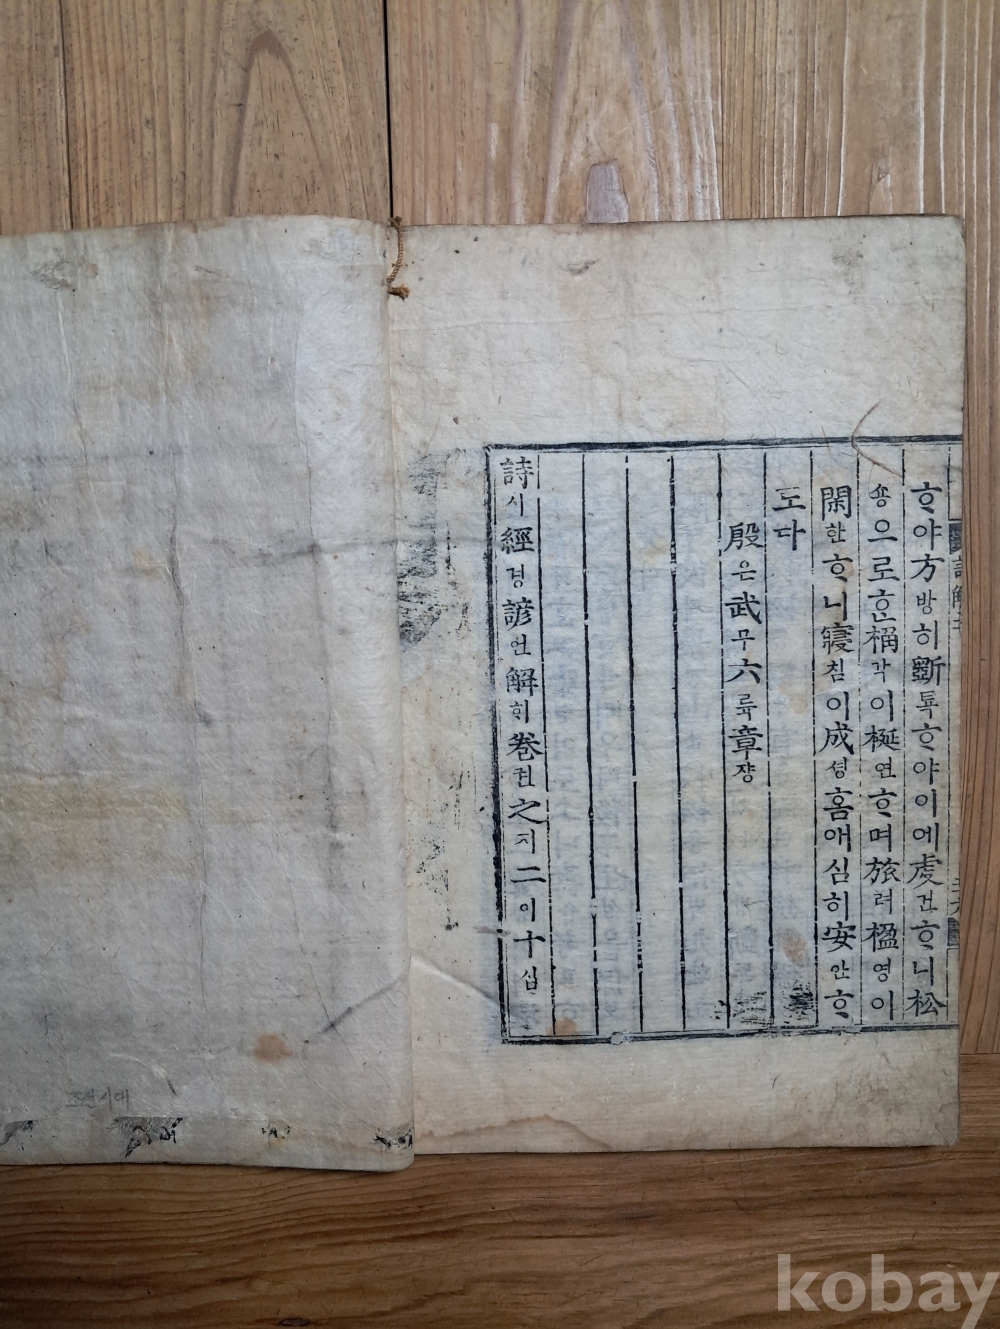 ᄒᆞ야方방히斲톡ᄒᆞ야이에虔건ᄒᆞ니松
숑으로ᄒᆞᆫ桷각이梴연ᄒᆞ며旅려楹영이
閑한ᄒᆞ니寢침이成셩홈애심히安안ᄒᆞ
도다
殷은武무六륙章쟝
詩시經경諺언解ᄒᆡ卷권之지二이十십
조선시대
kobay